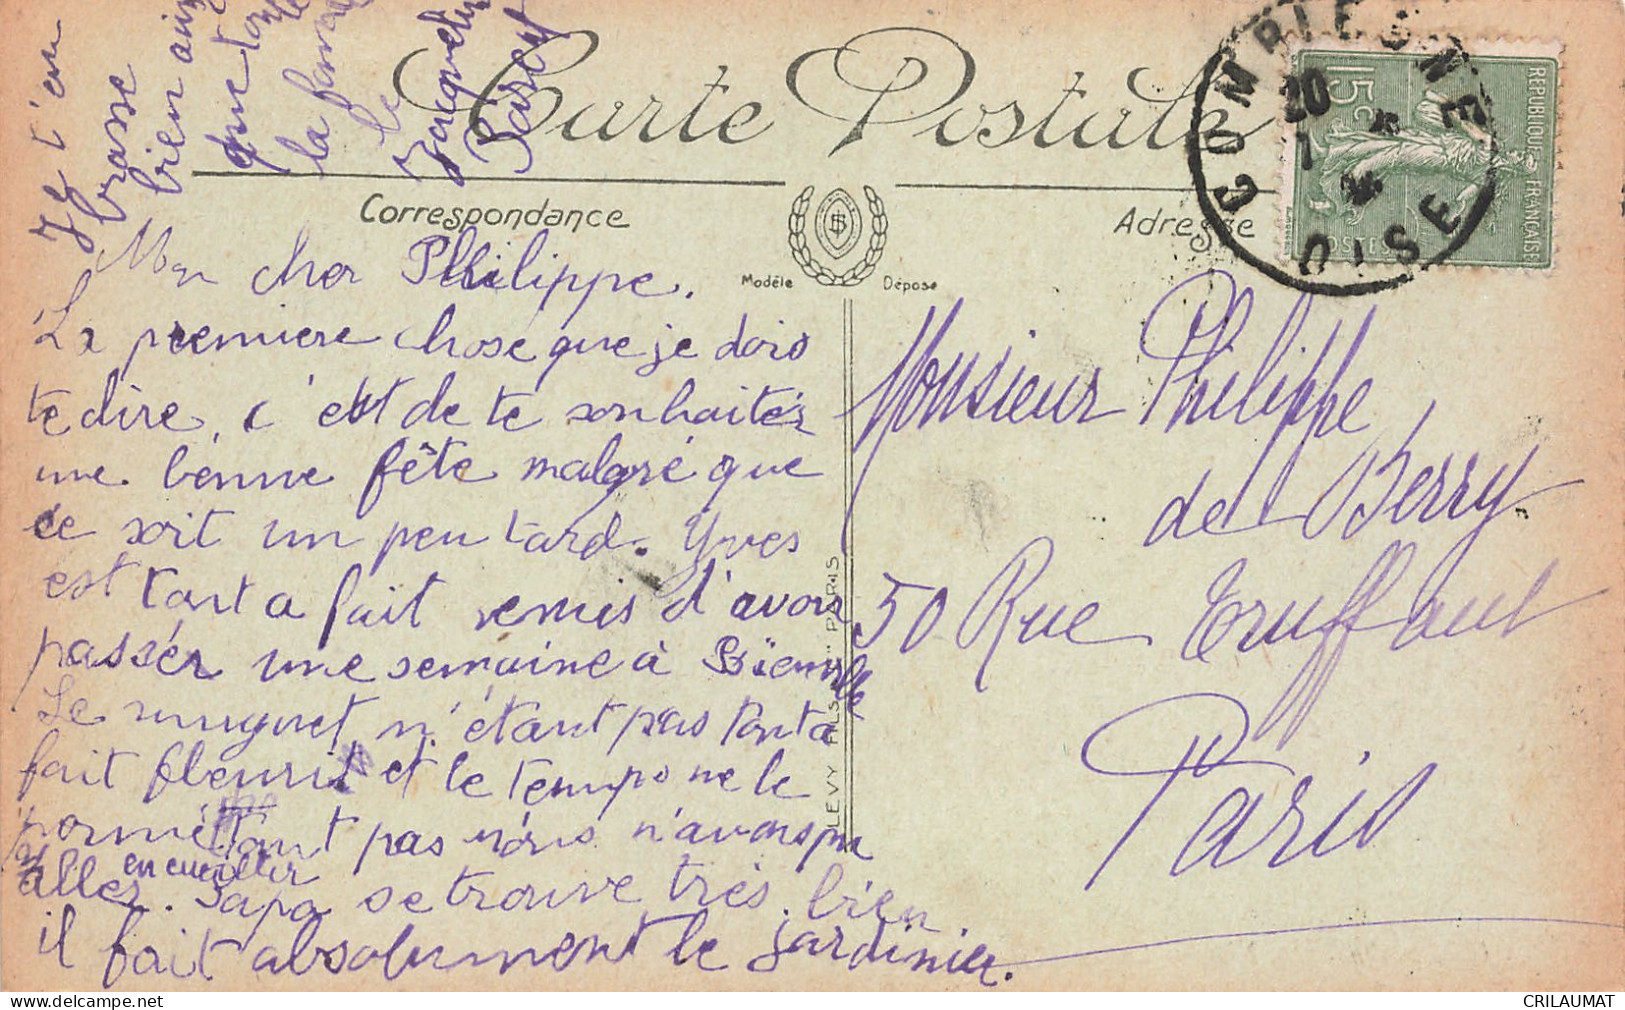 Carte Postale
Correspondance
Adresse
Modèle Déposé
LEVY FILS PARIS
COMPIEGNE
OISE
20
15c
REPUBLIQUE FRANCAISE
POSTES
Mon cher Philippe.
La premiere chose que je dois
te dire, c'est de te souhaiter
une bonne fête malgré que
ce soit un peu tard. Yves
est tout a fait remis d'avoir
passér une semaine à Bienville
Le muguet n'étant pas tout a
fait fleurit et le temps ne le
pormettant pas nous n'avons pu
aller en cueillir. Papa se trouve très bien
il fait absolument le jardinier.
Je t'en
brasse
bien ain
que ton
la fam
le
Jacquelin
Monsieur Philippe
de Berry
50 Rue Truffaut
Paris
CRILAUMAT